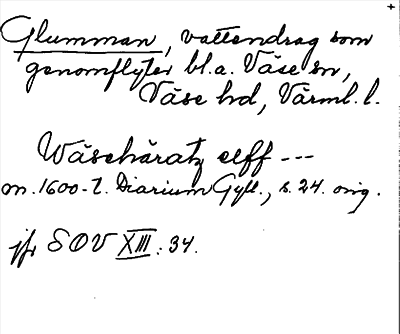 Glumman, vattendrag som
genomflyter bl.a. Väse sn,
Väse hd, Värml. l.
Wäsehäratz elff ---
m. 1600-t. Diarium Gyll., s. 24. orig.
jfr SOV XIII: 34.